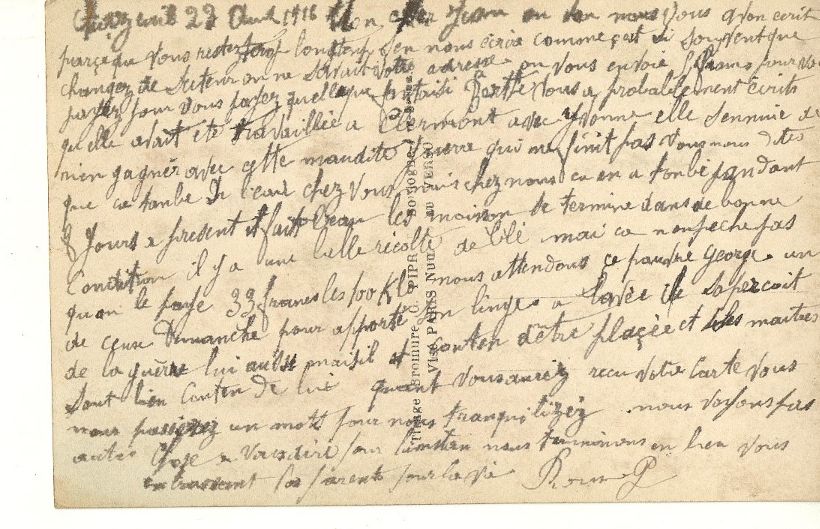 29 Aout 1916 Mon cher Jean on ne nous Vous avon ecrit
parçe que vous restez lontemp sen nous ecrire comme çest si souvent que
changez de Secteur on ne Savait Votre adresse on vous envoie 5 frans pour
payez pour Vous payez quelleque fantaisi Berthe Vous a probablement ecrits
qu'elle avait été travaillée a Clermont avec Yvonne elle sennuie de
rien gagnér avec cette maudite guerre qui ne finit pas Vous nous dites
que ca tombe de leau chez Vous mais chez nous ca en a tonbé pandant
8 Jours a present il fait beau les moison se termine dans de bonne
Condition il y a une belle récolte de blé mai ca nenpeche pas
quon le paye 33 francs les 100 Klé nous attendons ce pauvre George un
de ceux Dimanche pour apporté son linge a Lavée il saperçoit
de la guerre lui aussi mais il et conten dêtre plaçée et les maitres
Sont bien Conten de lui quant Vous auriez recu Votre Carte Vous
nous passerez un mott pour nous tranquilizéz nous voyons pas
autre chose a Vous dire pour linstan nous terminons en bien Vous
embrassent tes parents pour la vie
Thiske Bromure G. PIPR
Boulogne
VISÉ PARIS Nos
au VERSO